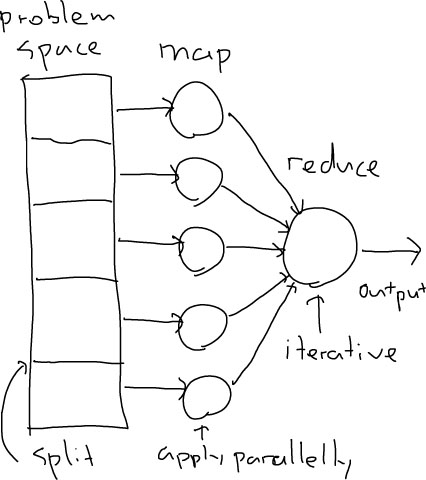 problem
space
map
reduce
output
iterative
split
apply parallelly